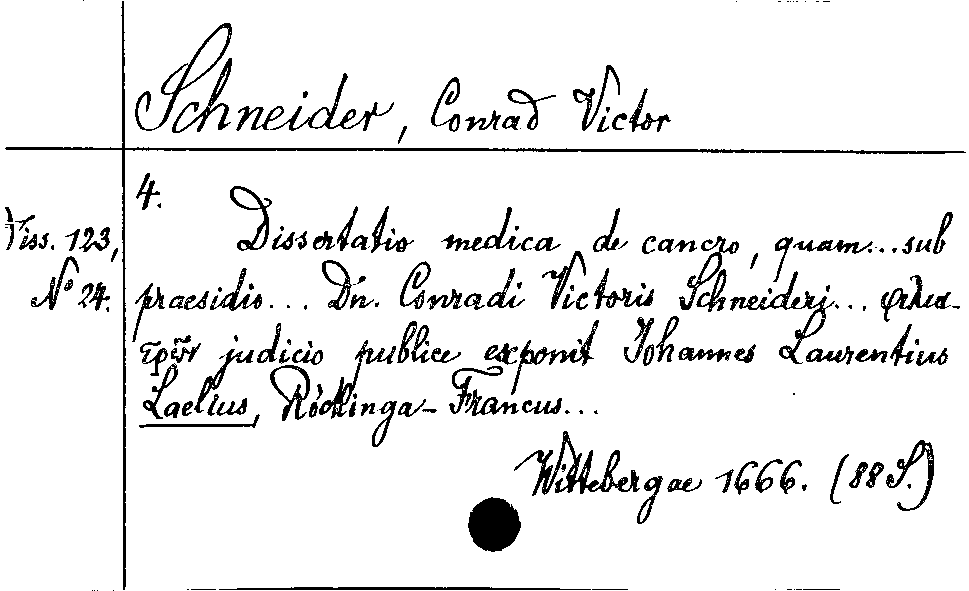 Schneider, Conrad Victor
4.
Diss. 123,
No 24.
Dissertatio medica de cancro, quam... sub
praesidio... Dn. Conradi Victoris Schneideri... φιλια-
τρῶν judicio publice exponit Johannes Laurentius
Laelius, Röckinga-Francus...
Wittebergae 1666. (88 S.)